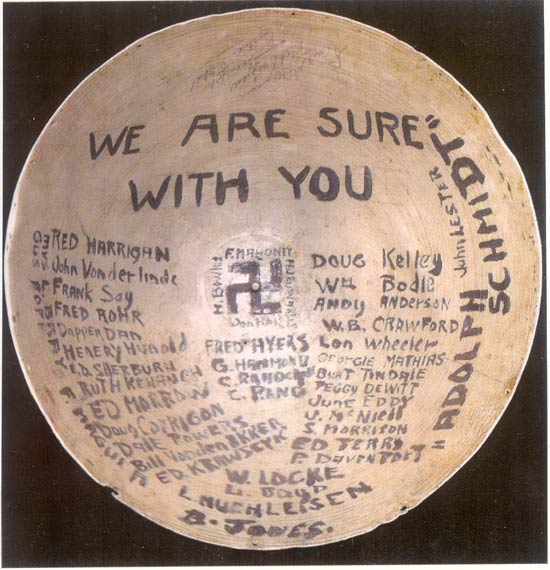 WE ARE SURE
WITH YOU
RED HARRIGAN
John Vonderlinde
FRANK Soy
FRED ROHR
DAPPER DAN
HENERY HUNOLD
SHERBURN
RUTH
ED MORROW
Doug CORRIGON
DALE POWERS
Bill Vanden AKKER
ED KRAWSCYK
F. MAHONEY
FRED HYERS
G. HAMMOND
C.
C. PANG
DOUG Kelley
Wm Bodie
ANDY ANDERSON
W.B. CRAWFORD
Lon Wheeler
GEORGIE MATHIAS
BURT TINDALE
PEGGY DEWITT
JUNE EDDY
J. McNiell
S. MORRISON
ED TERRY
P. DAVENPORT
W. LOCKE
L. MUEHLEISEN
B. JONES.
John LESTER
"ADOLPH SCHMIDT"